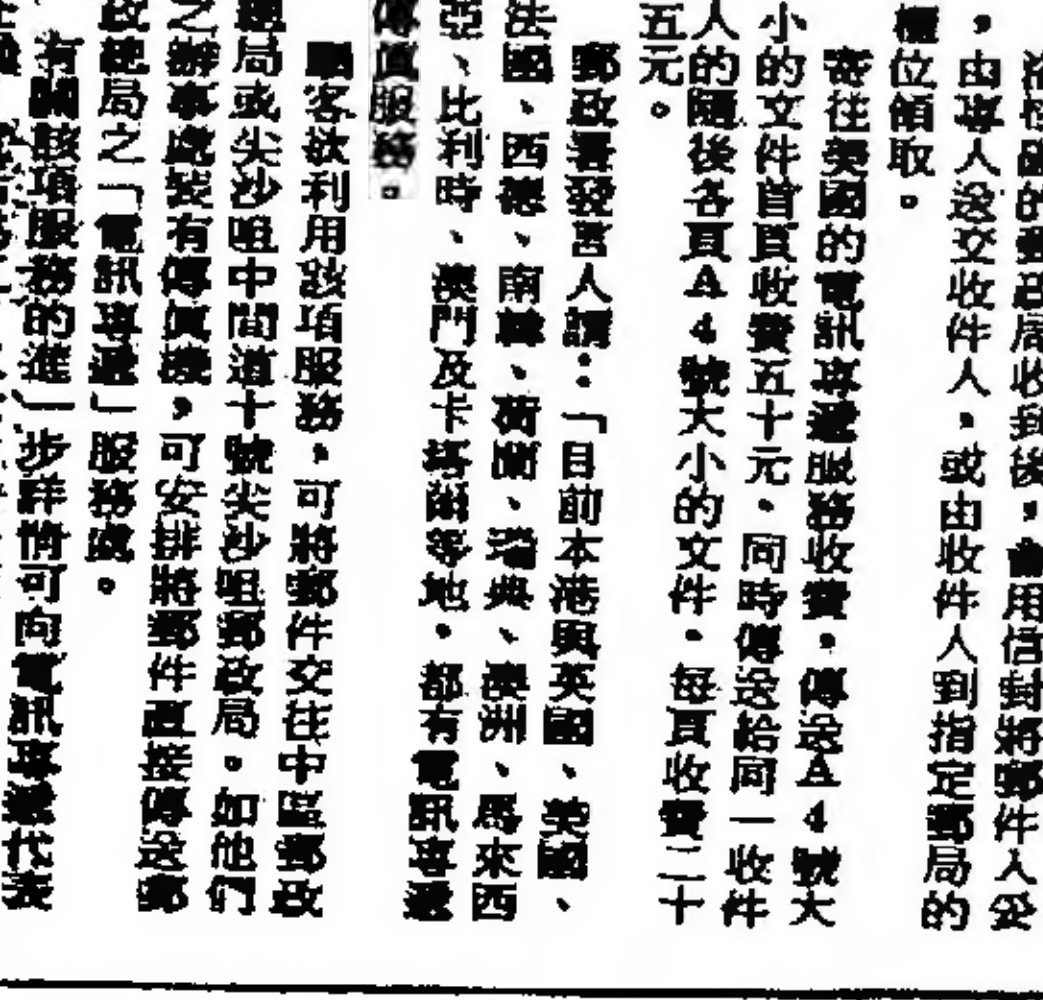 的郵政局收到後,會用信封將郵件入妥
,由專人送交收件人,或由收件人到指定郵局的
櫃位領取。
寄往美國的電訊專遞服務收費,傳送A4號大
小的文件首頁收費五十元。同時傳送給同一收件
人的隨後各頁A4號大小的文件,每頁收費二十
五元。
郵政署發言人謂:「目前本港與英國、美國、
法國、西德、南韓、荷蘭、瑞典、澳洲、馬來西
亞、比利時、澳門及卡塔爾等地,都有電訊專遞
傳真服務。
顧客欲利用該項服務,可將郵件交往中區郵政
總局或尖沙咀中間道十號尖沙咀郵政局。如他們
之辦事處裝有傳真機,可安排將郵件直接傳送郵
政總局之「電訊專遞」服務處。
有關該項服務的進一步詳情可向電訊專遞代表